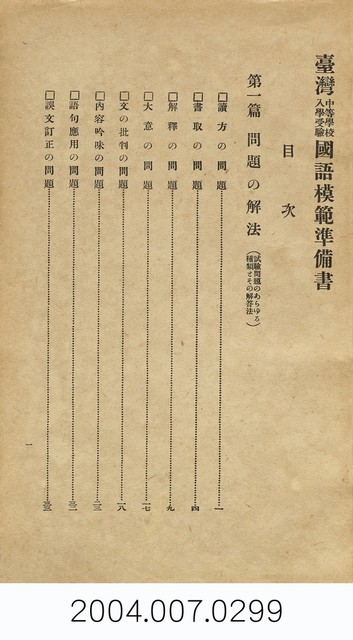 臺灣中等學校入學受驗國語模範準備書
目次
第一篇 問題の解法(試驗問題のあらゆる種類とその解答法)
□讀方の問題……一
□書取の問題……四
□解釋の問題……九
□大意の問題……一七
□文の批判の問題……一八
□内容吟味の問題……二三
□語句應用の問題
□誤文訂正の問題
一
2004.007.0299